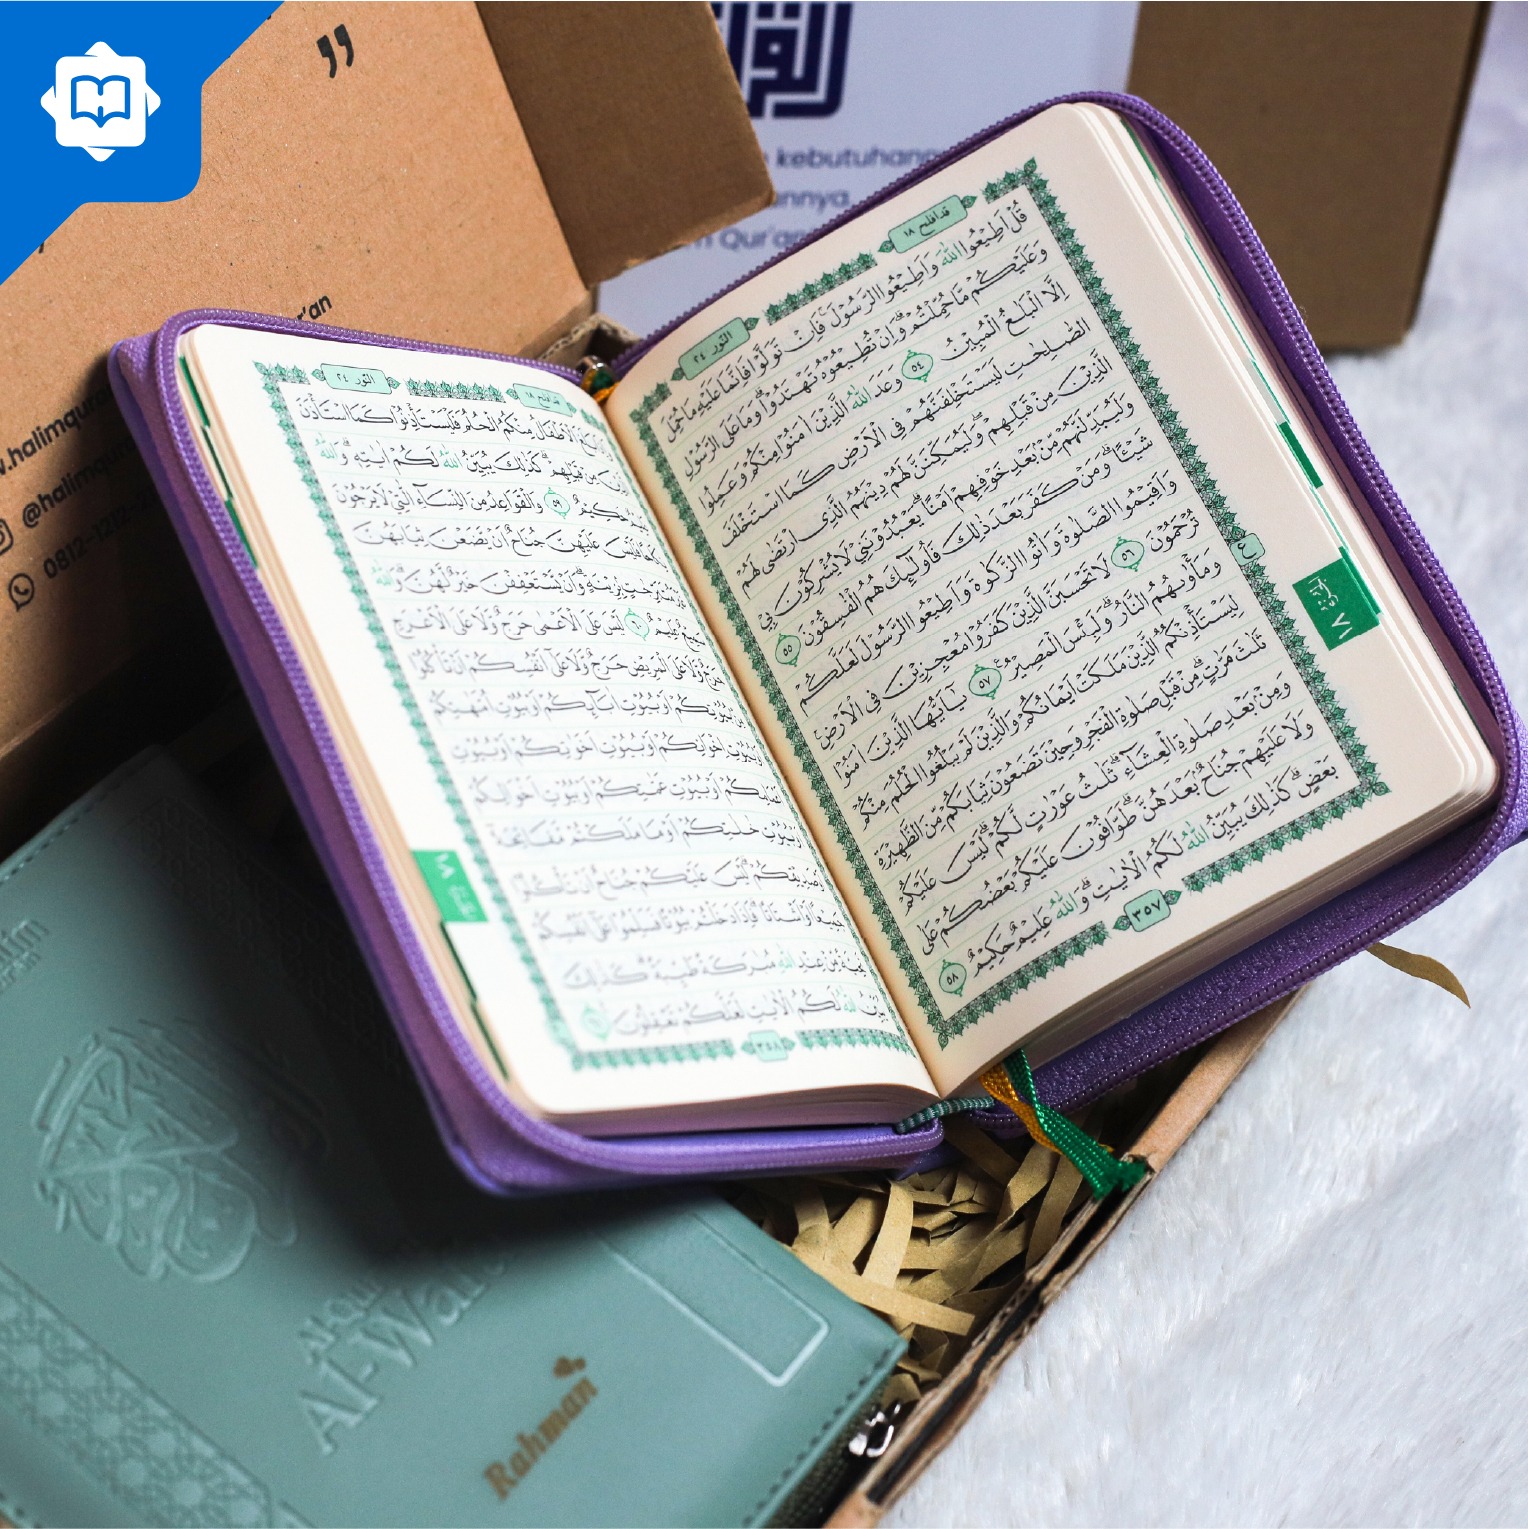 ”
r'an
w.halimqur
@halimqur
0812-1212-
القرا
kebutuhann
annya.
m Qur'an
قدافلح ١٨
النور ٢٤
قُلْ اَطِيْعُوا اللّٰهَ وَاَطِيْعُوا الرَّسُوْلَۚ فَاِنْ تَوَلَّوْا فَاِنَّمَا عَلَيْهِ مَا حُمِّلَ
وَعَلَيْكُمْ مَّا حُمِّلْتُمْۗ وَاِنْ تُطِيْعُوْهُ تَهْتَدُوْاۗ وَمَا عَلَى الرَّسُوْلِ
اِلَّا الْبَلٰغُ الْمُبِيْنُ ٥٤ وَعَدَ اللّٰهُ الَّذِيْنَ اٰمَنُوْا مِنْكُمْ وَعَمِلُوا
الصّٰلِحٰتِ لَيَسْتَخْلِفَنَّهُمْ فِى الْاَرْضِ كَمَا اسْتَخْلَفَ
الَّذِيْنَ مِنْ قَبْلِهِمْۖ وَلَيُمَكِّنَنَّ لَهُمْ دِيْنَهُمُ الَّذِى ارْتَضٰى لَهُمْ
وَلَيُبَدِّلَنَّهُمْ مِّنْۢ بَعْدِ خَوْفِهِمْ اَمْنًاۗ يَعْبُدُوْنَنِيْ لَا يُشْرِكُوْنَ بِيْ
شَيْـًٔاۗ وَمَنْ كَفَرَ بَعْدَ ذٰلِكَ فَاُولٰۤىِٕكَ هُمُ الْفٰسِقُوْنَ ٥٥
وَاَقِيْمُوا الصَّلٰوةَ وَاٰتُوا الزَّكٰوةَ وَاَطِيْعُوا الرَّسُوْلَ لَعَلَّكُمْ
تُرْحَمُوْنَ ٥٦ لَا تَحْسَبَنَّ الَّذِيْنَ كَفَرُوْا مُعْجِزِيْنَ فِى الْاَرْضِۚ
وَمَأْوٰىهُمُ النَّارُۗ وَلَبِئْسَ الْمَصِيْرُ ٥٧ يٰٓاَيُّهَا الَّذِيْنَ اٰمَنُوْا
لِيَسْتَأْذِنْكُمُ الَّذِيْنَ مَلَكَتْ اَيْمَانُكُمْ وَالَّذِيْنَ لَمْ يَبْلُغُوا الْحُلُمَ مِنْكُمْ
ثَلٰثَ مَرّٰتٍۗ مِنْ قَبْلِ صَلٰوةِ الْفَجْرِ وَحِيْنَ تَضَعُوْنَ ثِيَابَكُمْ مِّنَ الظَّهِيْرَةِ
وَمِنْۢ بَعْدِ صَلٰوةِ الْعِشَاۤءِۗ ثَلٰثُ عَوْرٰتٍ لَّكُمْۗ لَيْسَ عَلَيْكُمْ
وَلَا عَلَيْهِمْ جُنَاحٌۢ بَعْدَهُنَّۗ طَوَّافُوْنَ عَلَيْكُمْ بَعْضُكُمْ عَلٰى
بَعْضٍۗ كَذٰلِكَ يُبَيِّنُ اللّٰهُ لَكُمُ الْاٰيٰتِۗ وَاللّٰهُ عَلِيْمٌ حَكِيْمٌ ٥٨
٣٥٧
ع
الجزء ١٨
قدافلح ١٨
النور ٢٤
الْاَطْفَالُ مِنْكُمُ الْحُلُمَ فَلْيَسْتَأْذِنُوْا كَمَا اسْتَأْذَنَ
مِنْ قَبْلِهِمْۗ كَذٰلِكَ يُبَيِّنُ اللّٰهُ لَكُمْ اٰيٰتِهٖۗ وَاللّٰهُ
حَكِيْمٌ ٥٩ وَالْقَوَاعِدُ مِنَ النِّسَاۤءِ الّٰتِيْ لَا يَرْجُوْنَ
فَلَيْسَ عَلَيْهِنَّ جُنَاحٌ اَنْ يَّضَعْنَ ثِيَابَهُنَّ
بِزِيْنَةٍۗ وَاَنْ يَّسْتَعْفِفْنَ خَيْرٌ لَّهُنَّۗ وَاللّٰهُ
عَلِيْمٌ ٦٠ لَيْسَ عَلَى الْاَعْمٰى حَرَجٌ وَّلَا عَلَى الْاَعْرَجِ
حَرَجٌ وَّلَا عَلَى الْمَرِيْضِ حَرَجٌ وَّلَا عَلٰٓى اَنْفُسِكُمْ اَنْ تَأْكُلُوْا
مِنْۢ بُيُوْتِكُمْ اَوْ بُيُوْتِ اٰبَاۤىِٕكُمْ اَوْ بُيُوْتِ اُمَّهٰتِكُمْ
اَوْ بُيُوْتِ اِخْوَانِكُمْ اَوْ بُيُوْتِ اَخَوٰتِكُمْ اَوْ بُيُوْتِ
اَعْمَامِكُمْ اَوْ بُيُوْتِ عَمّٰتِكُمْ اَوْ بُيُوْتِ اَخْوَالِكُمْ
اَوْ بُيُوْتِ خٰلٰتِكُمْ اَوْ مَا مَلَكْتُمْ مَّفَاتِحَهٗٓ
اَوْ صَدِيْقِكُمْۗ لَيْسَ عَلَيْكُمْ جُنَاحٌ اَنْ تَأْكُلُوْا
جَمِيْعًا اَوْ اَشْتَاتًاۗ فَاِذَا دَخَلْتُمْ بُيُوْتًا فَسَلِّمُوْا عَلٰٓى اَنْفُسِكُمْ
تَحِيَّةً مِّنْ عِنْدِ اللّٰهِ مُبٰرَكَةً طَيِّبَةًۗ كَذٰلِكَ
يُبَيِّنُ اللّٰهُ لَكُمُ الْاٰيٰتِ لَعَلَّكُمْ تَعْقِلُوْنَ ٦١
٣٥٨
١٨
Al-Qur
Al-War
Rahman